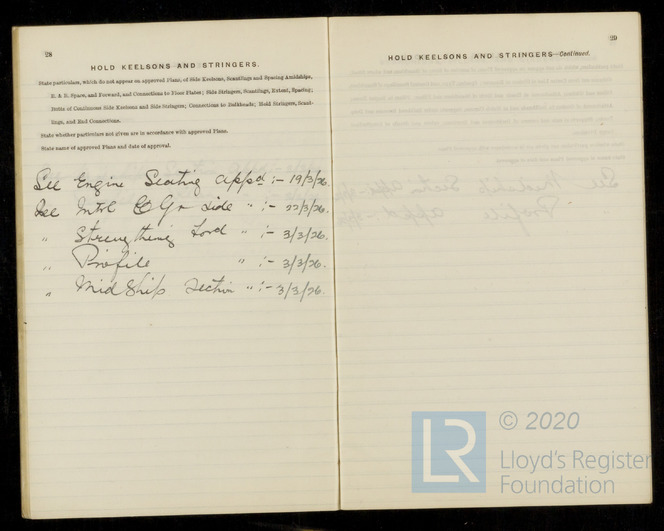 28
HOLD KEELSONS AND STRINGERS.
State particulars, which do not appear on approved Plans, of Side Keelsons, Scantlings and Spacing Amidships,
E. & B. Space, and Forward, and Connections to Floor Plates; Side Stringers, Scantlings, Extent, Spacing;
Butts of Continuous Side Keelsons and Side Stringers; Connections to Bulkheads; Hold Stringers, Scant-
lings, and End Connections.
State whether particulars not given are in accordance with approved Plans.
State name of approved Plans and date of approval.
See Engine Seating appd :- 19/3/26.
See Side " :- 22/3/26.
" Strengthening " :- 3/3/26.
" Profile " :- 3/3/26.
" MidShip Section " :- 3/3/26.
29
HOLD KEELSONS AND STRINGERS—Continued.
LR
© 2020
Lloyd's Register
Foundation